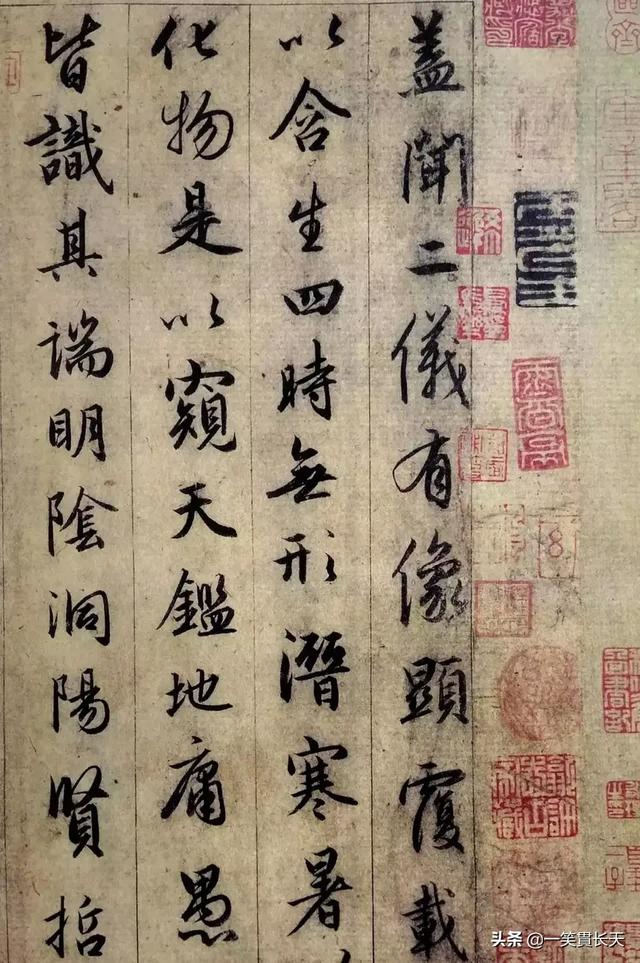 蓋聞二儀有像顯覆載
以含生四時無形潛寒暑以
化物是以窺天鑑地庸愚
皆識其端明陰洞陽賢哲
头条 @一笑貫长天